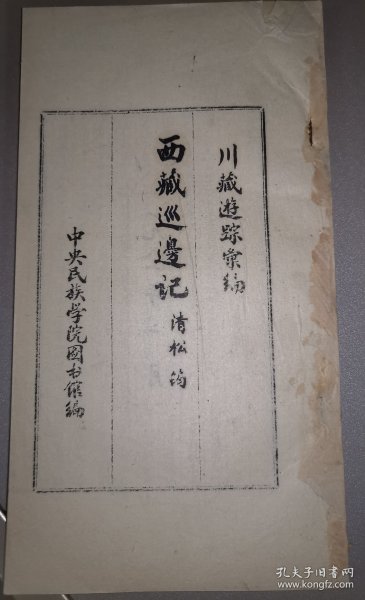 川藏遊踪彙編
西藏巡邊記 清松筠
中央民族学院图书馆编
孔夫子旧书网
www.kongfz.com